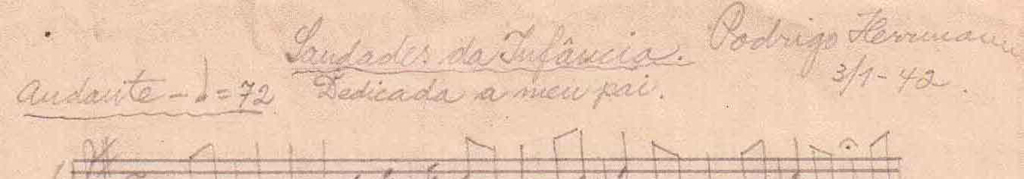 Saudades da Infância. Rodrigo Herrmann
Andante - ♩=72 Dedicada a meu pai. 3/1-42.